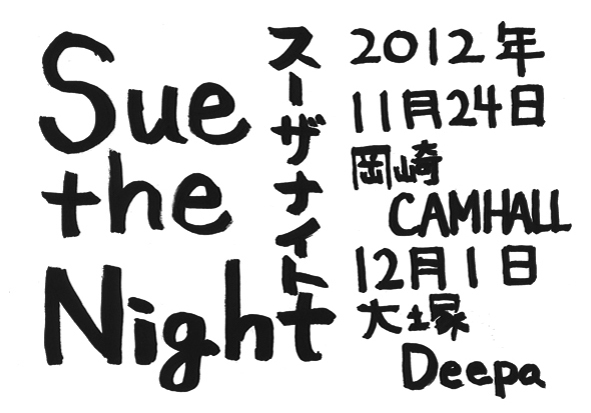 Sue
the
Night
スーザナイト
2012年
11月24日
岡崎
CAMHALL
12月1日
大塚
Deepa